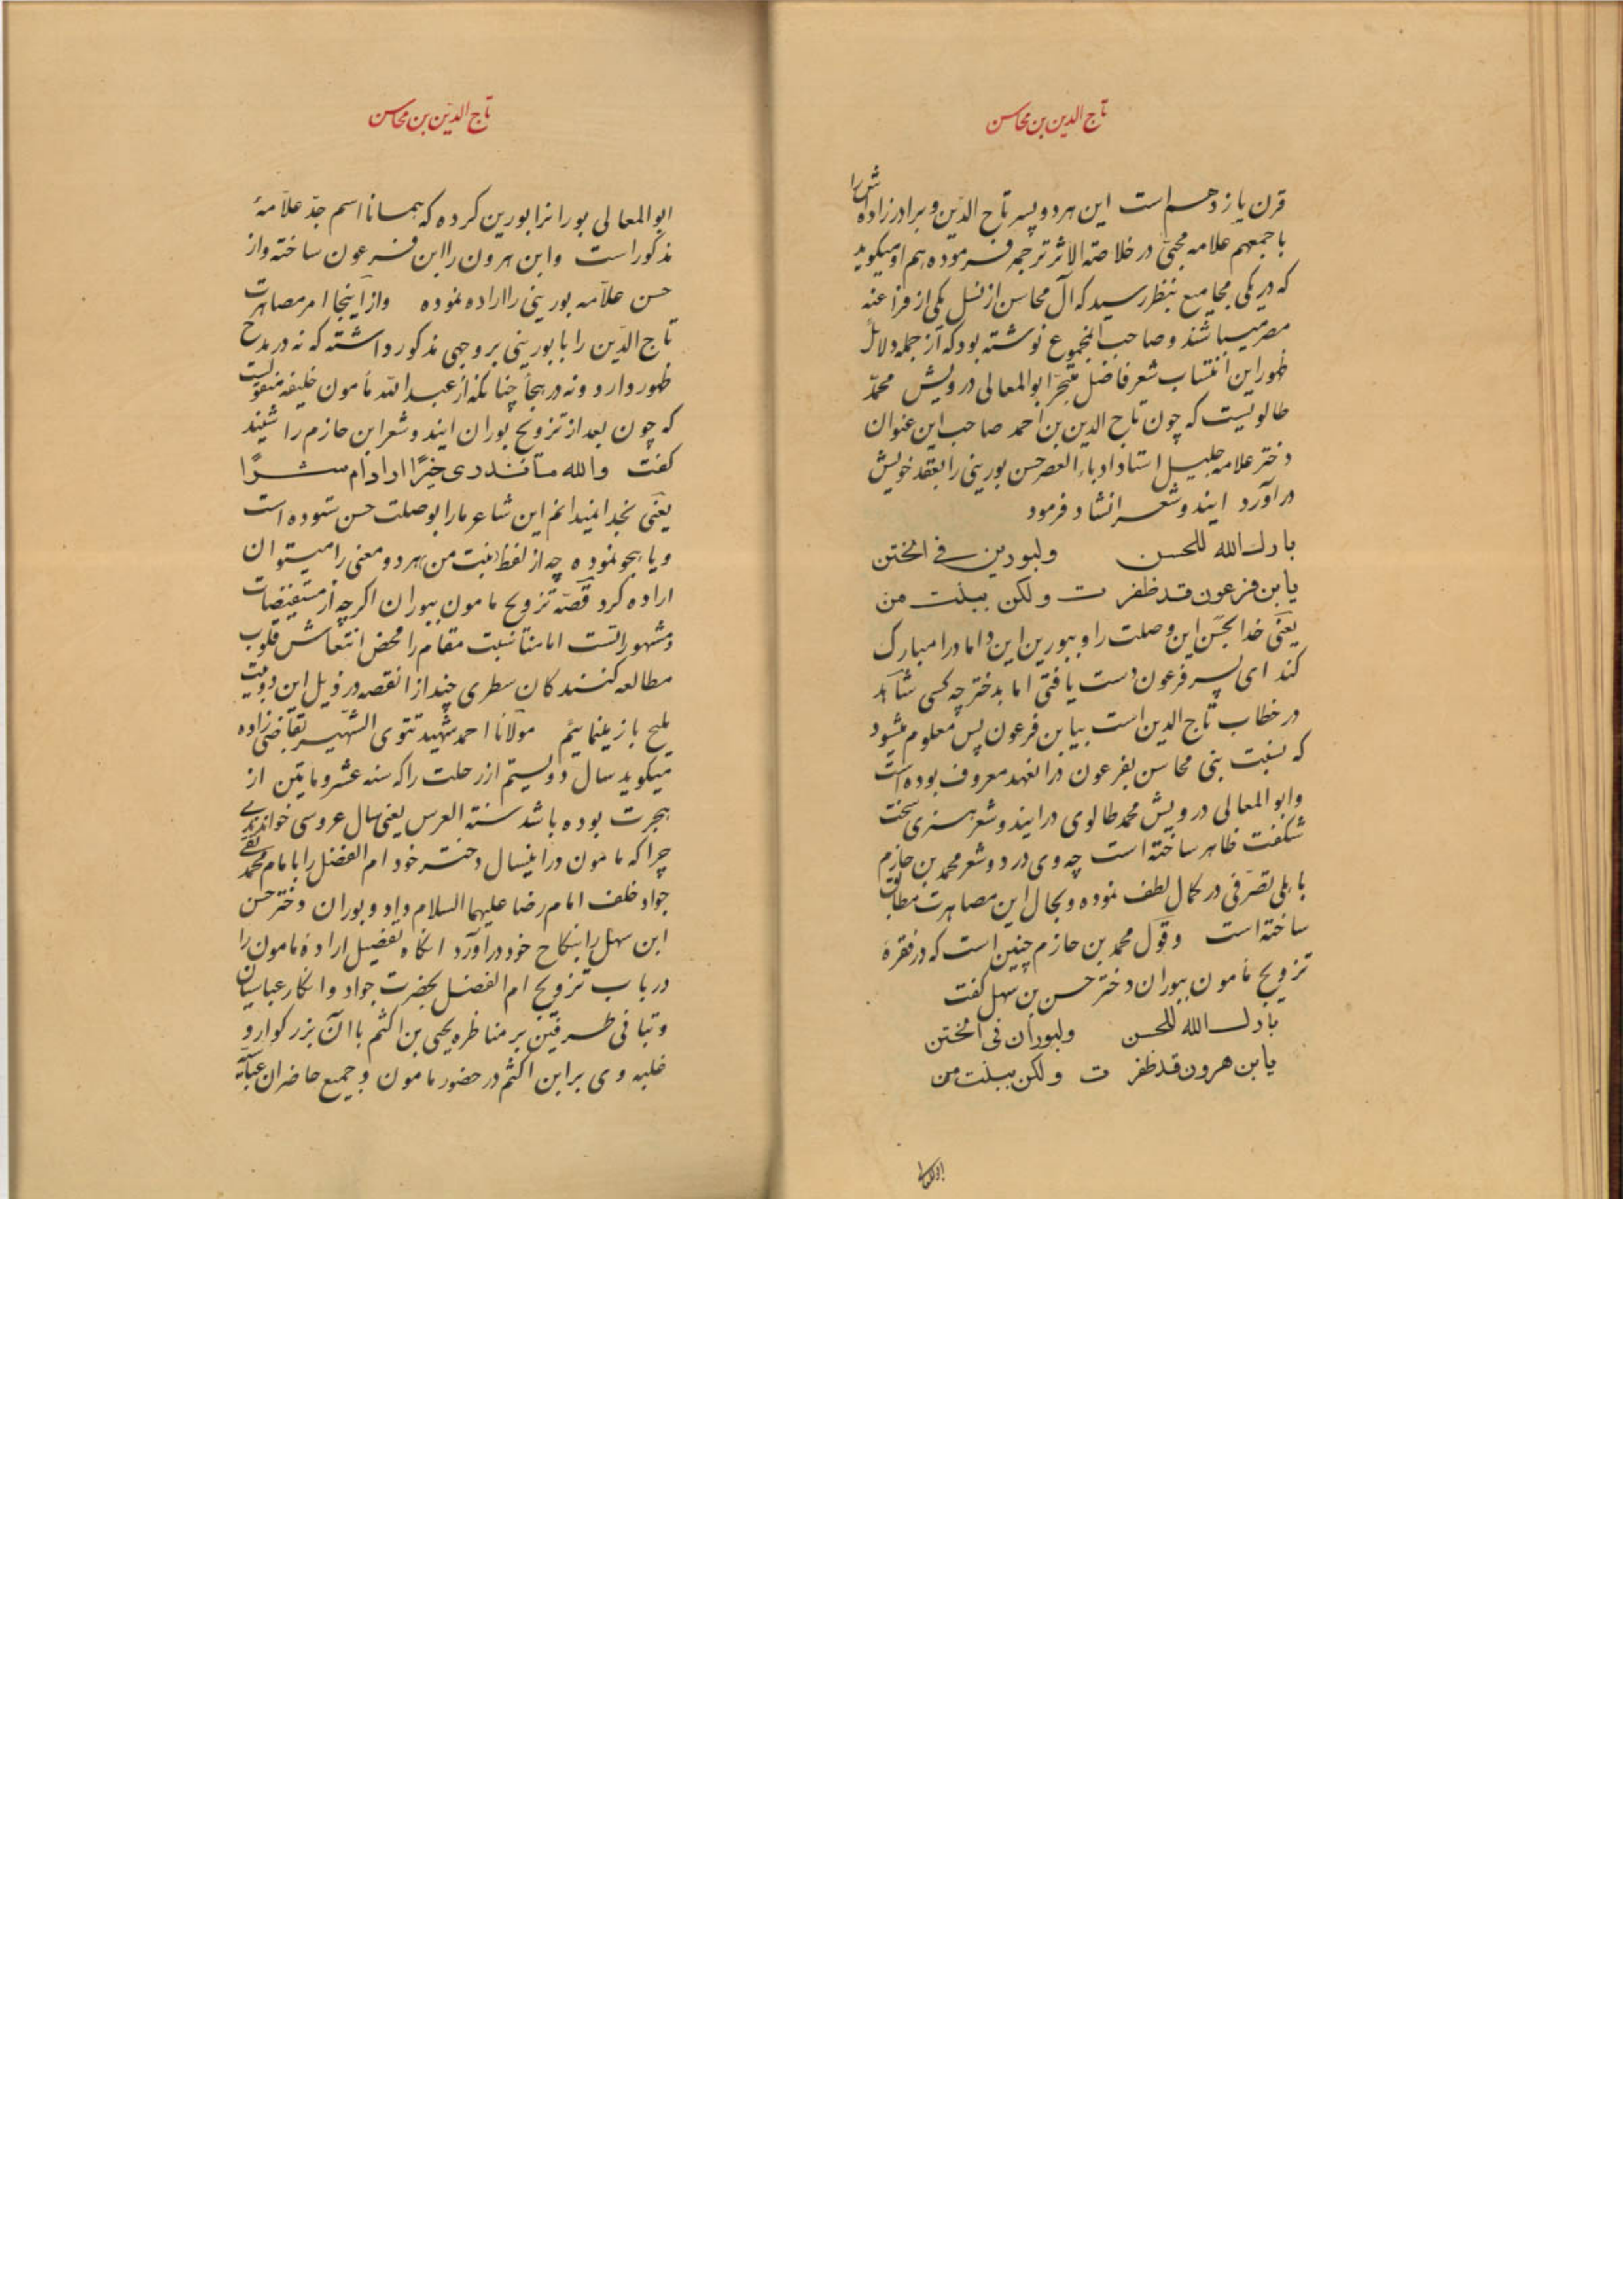 تاج الدین بن محاسن
قرن یازدهم است این هر دو پسر تاج الدین و برادرزاده‌اش را
با جمعهم علامه محبی در خلاصة الاثر ترجمه فرموده هم او میکوید
که در یکی مجامیع بنظر رسید که آل محاسن از نسل یکی از فراعنه
مصر میباشند و صاحب المجموع نوشته بود که از جمله دلائل
ظهور این انتساب شعر فاضل متبحر ابوالمعالی درویش محمد
طالویست که چون تاج الدین بن احمد صاحب این عنوان
دختر علامه جلیل استاد ادباء العصر حسن بورینی را بعقد خویش
در آورد ایندو شعر انشاد فرمود
بارك الله للحسن ولبورین فی الختن
یابن فرعون قد ظفر ت ولکن ببنت من
یعنی خدا بحسن این وصلت را و ببورین این داماد را مبارک
کند ای پسر فرعون دست یافتی اما بدختر چه کسی شاهد
در خطاب تاج الدین است بیابن فرعون پس معلوم میشود
که نسبت بنی محاسن بفرعون در انعهد معروف بوده است
وابوالمعالی درویش محمد طالوی در ایندو شعر هنری سخت
شکفت ظاهر ساخته است چه وی در دو شعر محمد بن حازم
باهلی تصرفی در کمال لطف نموده و بحال این مصاهرت مطابق
ساخته است و قول محمد بن حازم چنین است که در فقرهٔ
تزویج مامون ببوران دختر حسن بن سهل کفت
بارك الله للحسن ولبوران فی الختن
یابن هرون قد ظفر ت ولکن ببنت من
ابوالمعالی
تاج الدین بن محاسن
ابوالمعالی بوران را بورین کرده که همانا اسم جد علامهٔ
مذکور است وابن هرون را ابن فرعون ساخته واز
حسن علامه بورینی را اراده نموده واز اینجا امر مصاهرت
تاج الدین را با بورینی بر وجهی مذکور داشته که نه در مدح
ظهور دارد و نه در هجا چنانکه از عبد الله مأمون خلیفه منقولست
که چون بعد از تزویج بوران ایندو شعر ابن حازم را شنید
کفت والله ما ندری خیرًا اراد ام شرًا
یعنی بخدا نمیدانم این شاعر ما را بوصلت حسن ستوده است
و یا هجو نموده چه از لفظ ببنت من هر دو معنی را میتوان
اراده کرد قصه تزویج مامون ببوران اکرچه از مستفیضات
و مشهوراتست اما مناسبت مقام را محض انتعاش قلوب
مطالعه کنندکان سطری چند از انقصه در ذیل این دو بیت
ملیح باز مینمائیم مولانا احمد شهید تتوی الشهیر بقاضی زاده
میکوید سال دویستم از رحلت را که سنه عشر و ماتین از
هجرت بوده باشد سنة العرس یعنی سال عروسی خواندندی
چرا که مامون در اینسال دختر خود ام الفضل را بامام محمد تقی
جواد خلف امام رضا علیهما السلام داد و بوران دختر حسن
ابن سهل را بنکاح خود درآورد انکاه تفصیل اراده مامون را
در باب تزویج ام الفضل بحضرت جواد وانکار عباسیان
و تبانی طرفین بر مناظره یحیی بن اکثم با ان بزرکوار و
غلبه وی بر ابن اکثم در حضور مامون و جمیع حاضران